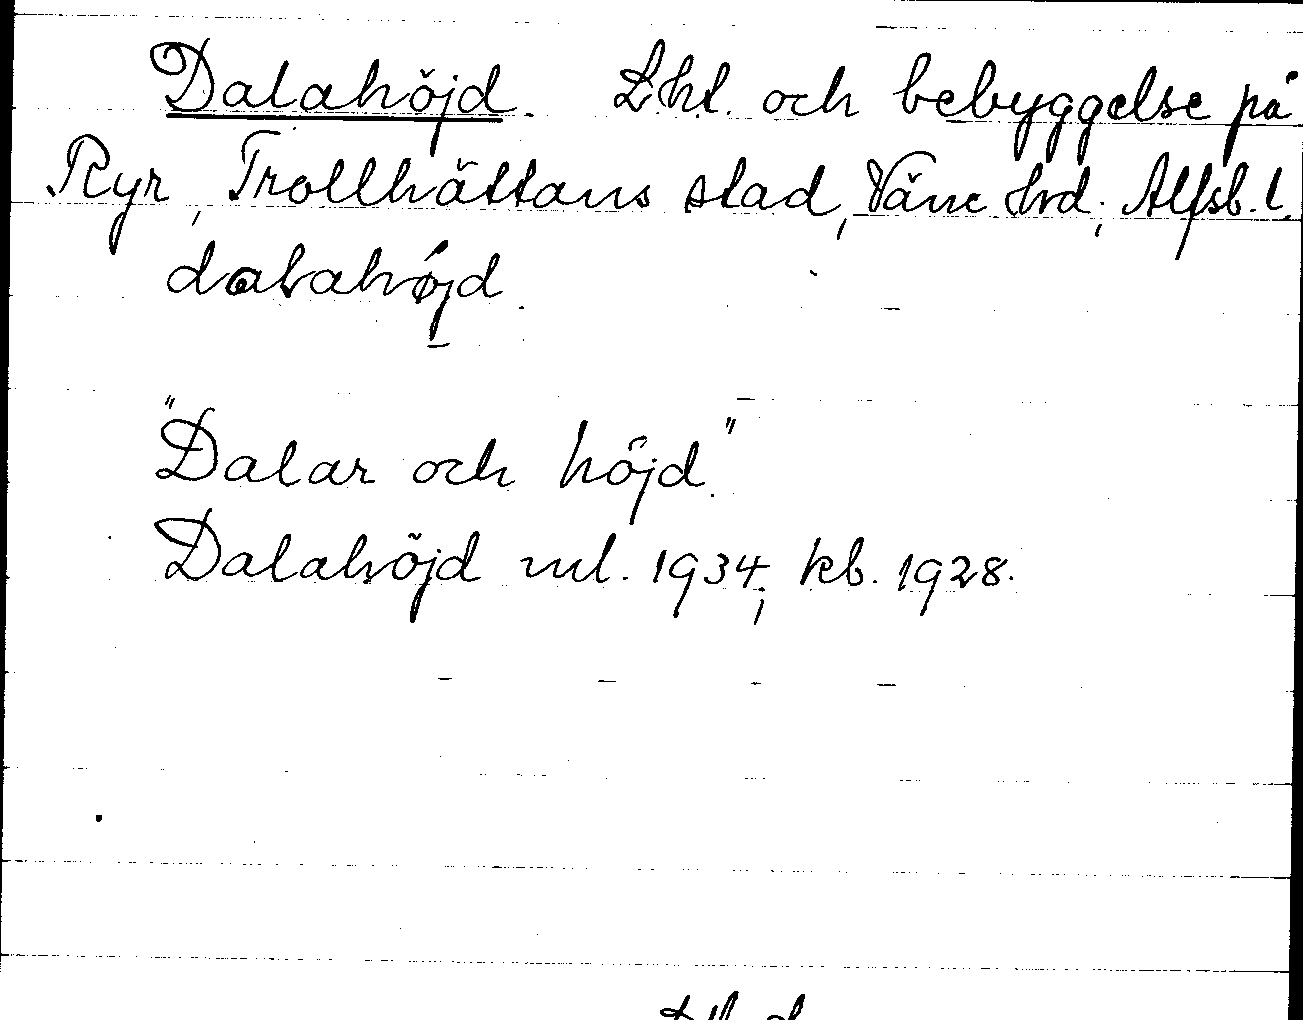 Dalahöjd. Lht. och bebyggelse på
Ryr, Trollhättans stad, Väne hrd, Älfsb. l.
dalahöjd.
"Dalar och höjd."
Dalahöjd ml. 1934; kb. 1928.